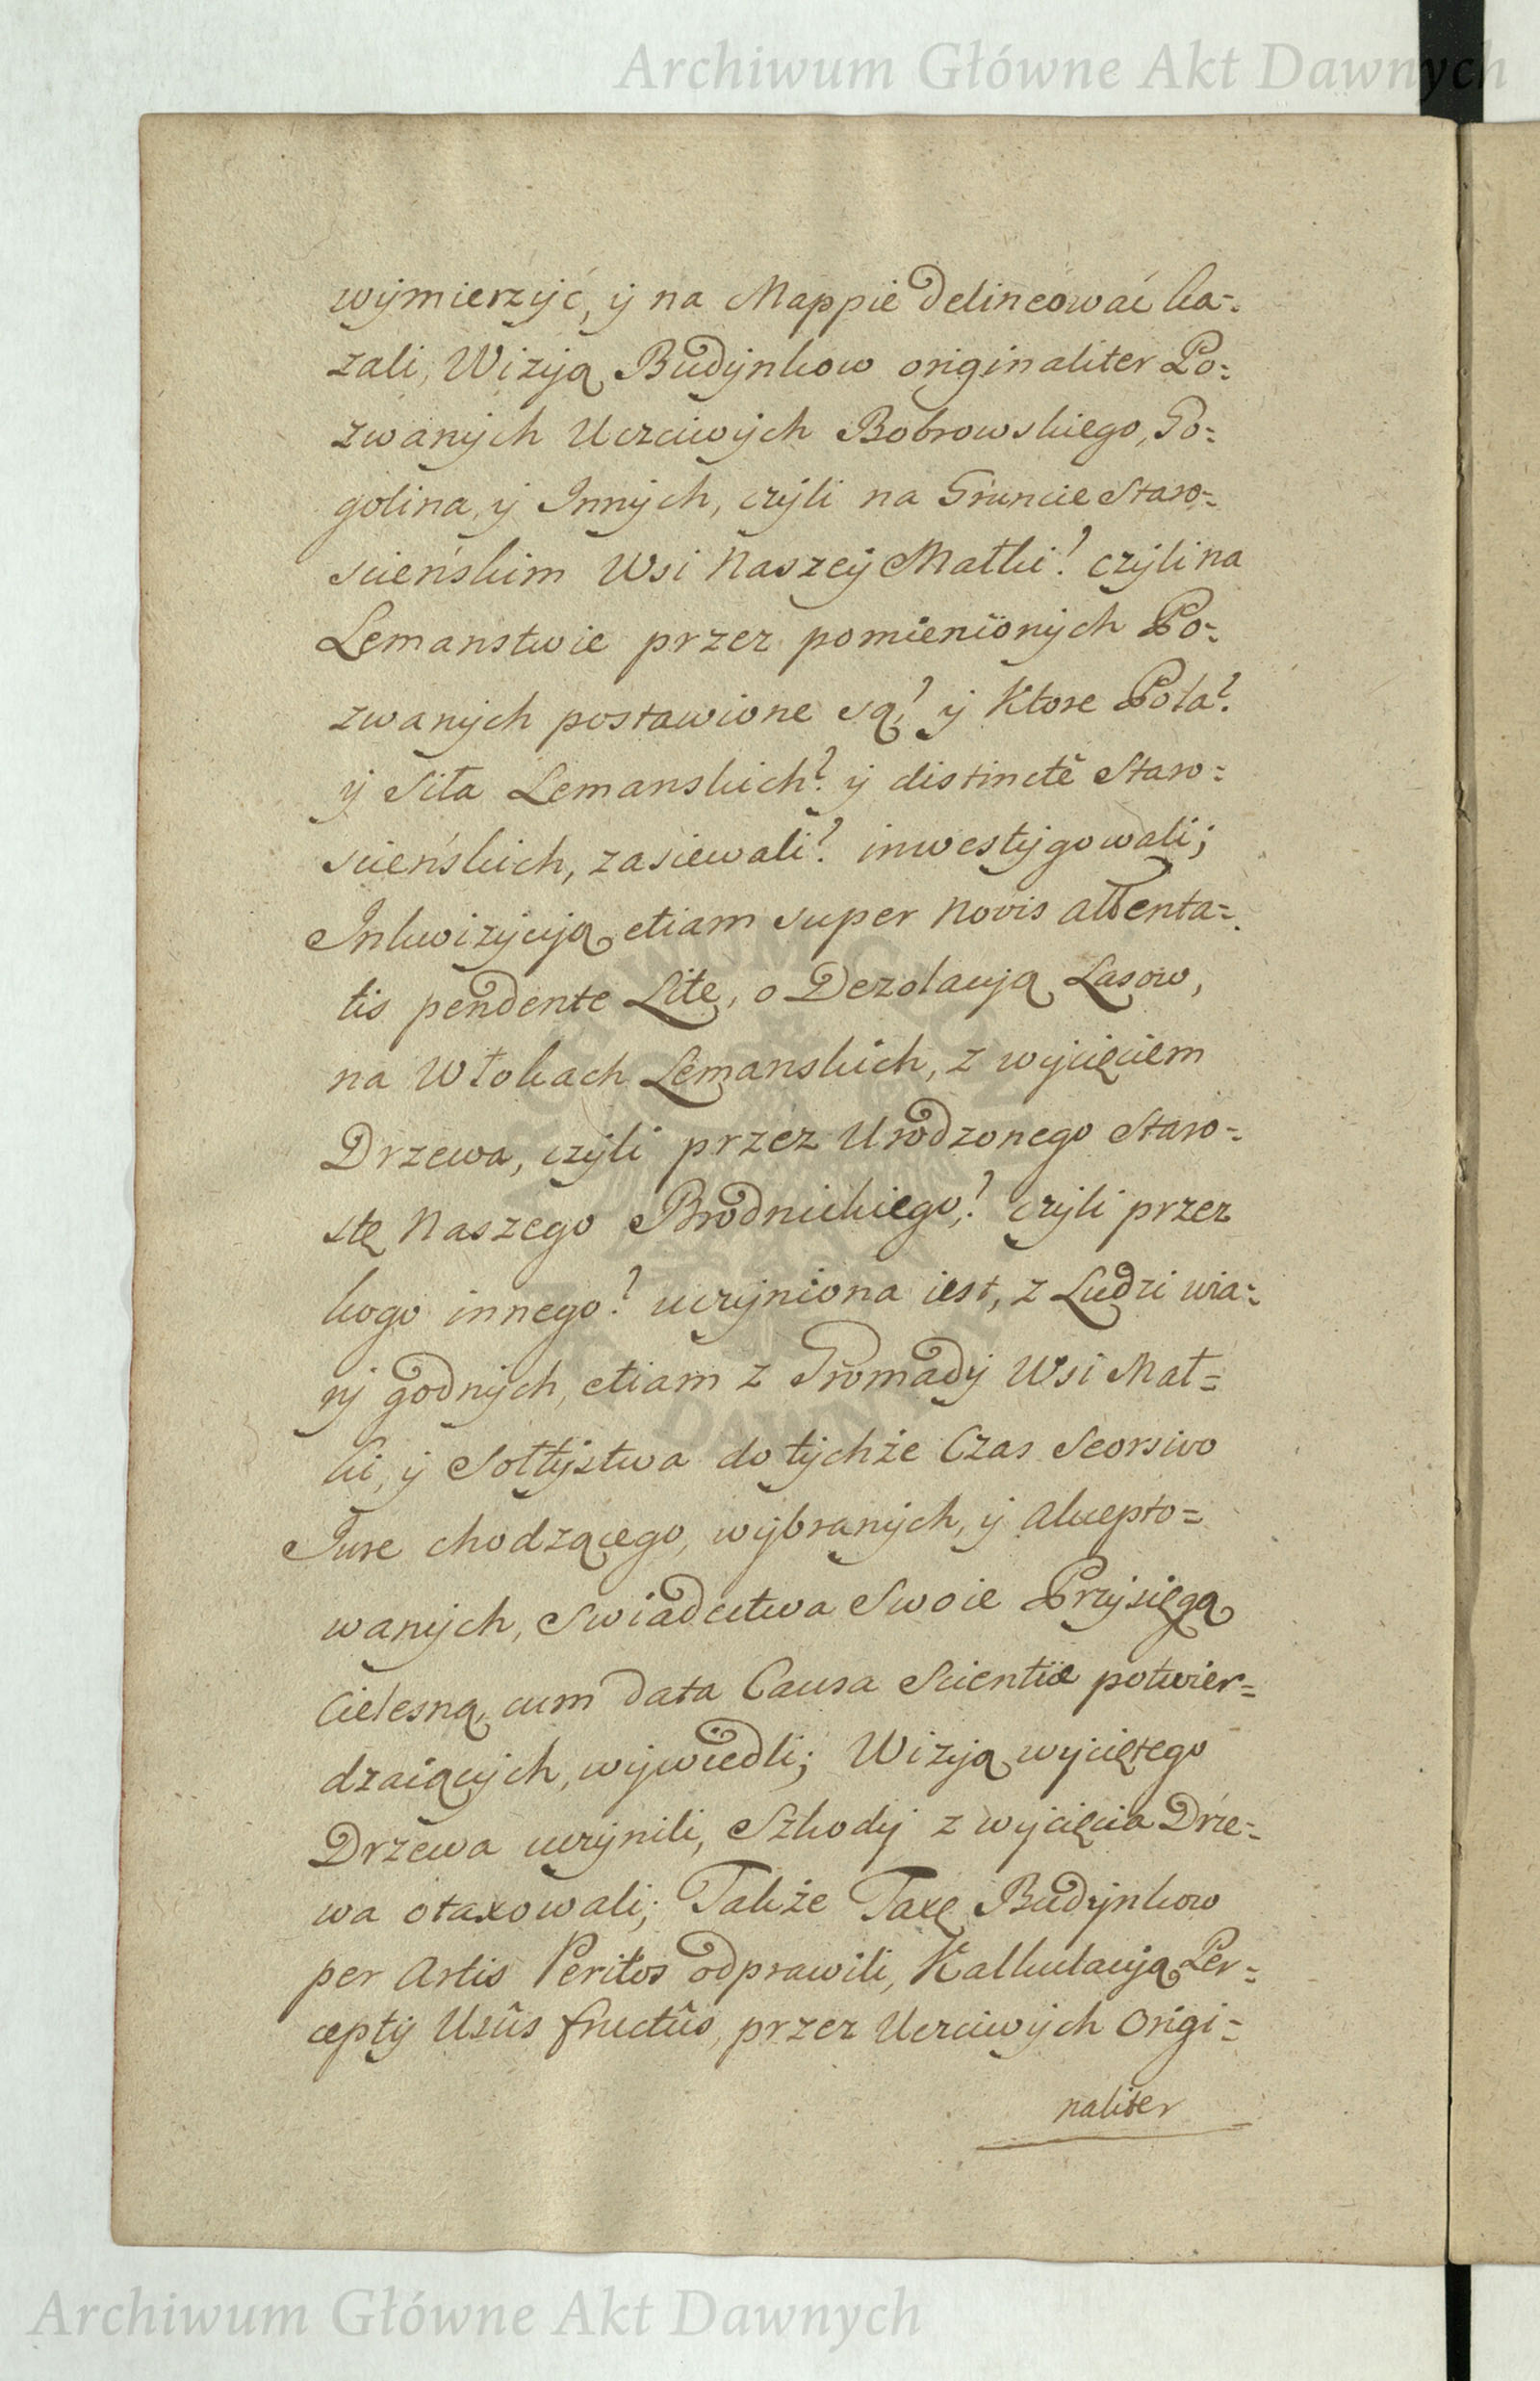 Archiwum Główne Akt Dawnych
wÿmierzÿć, ÿ na Mappie delineować ka=
zali, Wizÿą Budÿnkow originaliter Po=
zwanÿch Uczciwÿch Bobrowskiego, Go=
golina, ÿ Innÿch, czÿli na Gruncie Staro=
scieńskim Wsi Naszeÿ Małki? czÿli na
Lemanstwie przez pomienionÿch Po=
zwanych postawione są? ÿ Ktore Pola?
ÿ Siła Lemanskich? ÿ distinctè Staro=
scieńskich, zasiewali? inwestÿgowali;
Inkwizÿcÿą etiam super Novis attenta=
tis pendente Lite, o Dezolacÿą Lasow,
na Włokach Lemanskich, z wÿcięciem
Drzewa, czÿli przez Urodzonego Staro=
stę Naszego Brodnickiego? czÿli przez
kogo innego? uczÿniona iest, z Ludzi wia=
rÿ godnÿch, etiam z Gromadÿ Wsi Mał=
ki, ÿ Sołtÿstwa do tÿchże Czas Seorsivo
Jure chodzącego, wÿbranÿch, ÿ akcepto=
wanÿch, Swiadectwa Swoie Przÿsięgą
Cielesną, cum data Causa Scientiæ potwier=
dzaiącÿch, wÿwiedli; Wizÿą wÿciętego
Drzewa uczÿnili, Szkodÿ z wÿcięcia Drze=
wa otaxowali; Także Taxę Budÿnkow
per Artis Peritos odprawili, Kalkulacÿą Per=
ceptÿ Usûs fructûs, przez Uczciwÿch Origi=
naliter
ARCHIWUM GŁÓWNE AKT DAWNYCH
Archiwum Główne Akt Dawnych